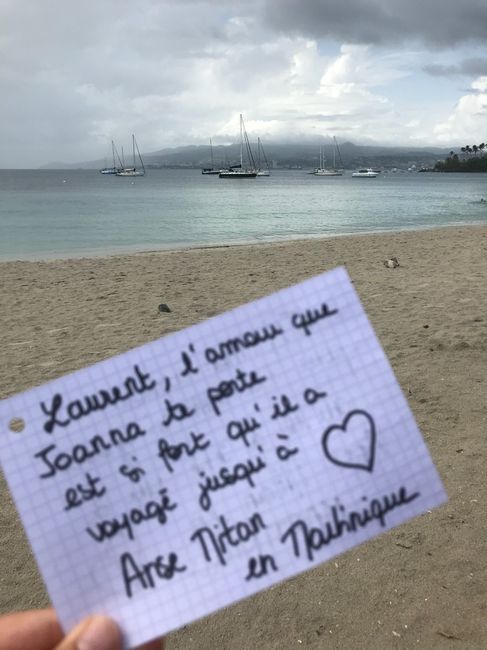 Laurent, l'amour que
Joanna te porte
est si fort qu'il a
voyagé jusqu'à
Anse Mitan
en Martinique